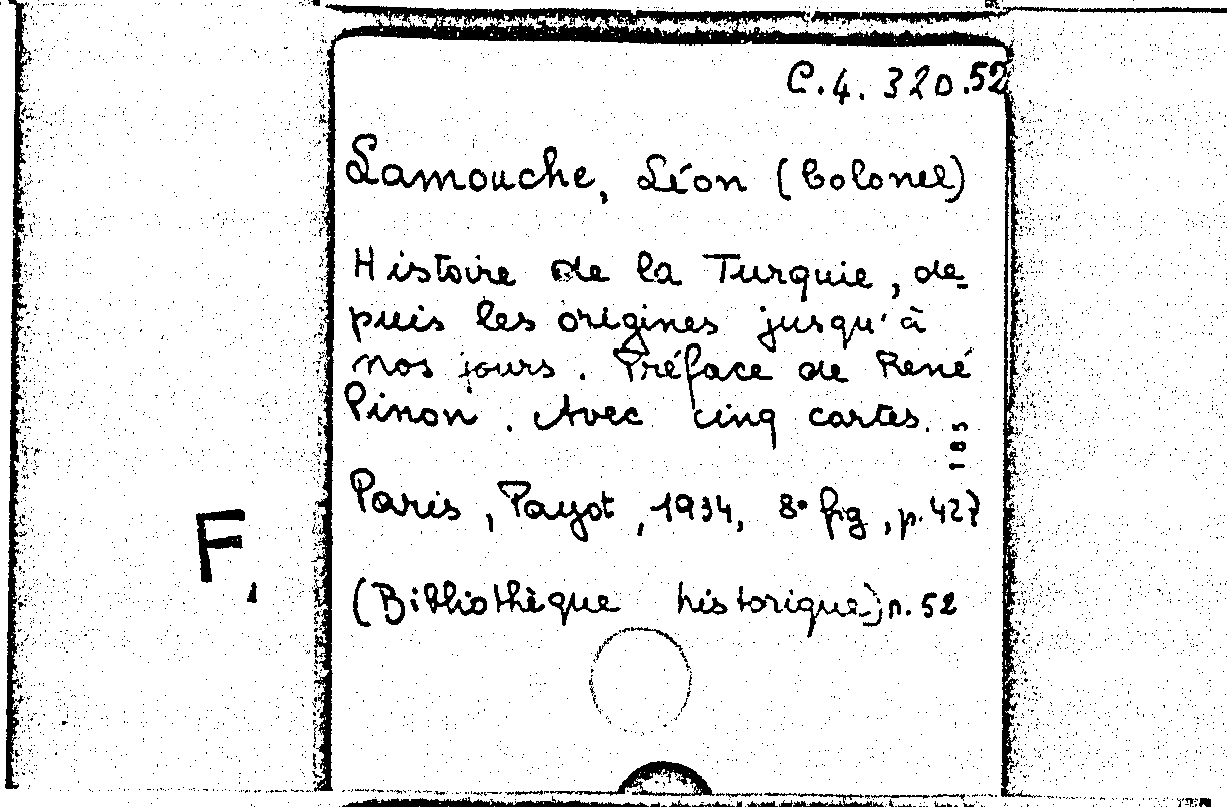 C.4. 320.52
Lamouche, Léon (Colonel)
Histoire de la Turquie, de-
puis les origines jusqu'à
nos jours. Préface de René
Pinon. Avec cinq cartes.
185
Paris, Payot, 1934, 8° fig, p. 427
(Bibliothèque historique) n. 52
F.